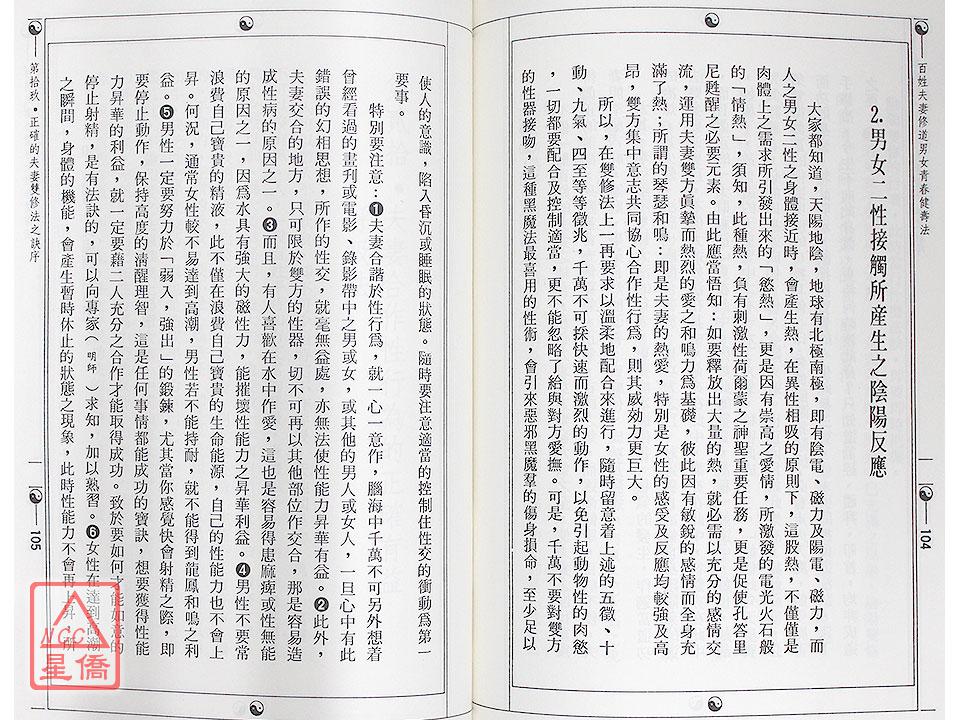 百姓夫妻修道男女青春健壽法
104
2.男女二性接觸所產生之陰陽反應
大家都知道，天陽地陰，地球有北極南極，即有陰電、磁力及陽電、磁力，而
人之男女二性之身體接近時，會產生熱，在異性相吸的原則下，這股熱，不僅僅是
肉體上之需求所引發出來的「慾熱」，更是因有崇高之愛情，所激發的電光火石般
的「情熱」，須知，此種熱，負有刺激性荷爾蒙之神聖重要任務，更是促使孔答里
尼甦醒之必要元素。由此應當悟知：如要釋放出大量的熱，就必需以充分的感情交
流，運用夫妻雙方真摯而熱烈的愛之和鳴力為基礎，彼此因有敏銳的感情而全身充
滿了熱；所謂的琴瑟和鳴：即是夫妻的熱愛，特別是女性的感受及反應均較強及高
昂，雙方集中意志共同協心合作性行為，則其威効力更巨大。
所以，在雙修法上一再要求以溫柔地配合來進行，隨時留意着上述的五徵、十
動、九氣、四至等等徵兆，千萬不可採快速而激烈的動作，以免引起動物性的肉慾
，一切都要配合及控制適當，更不能忽略了給與對方愛撫。可是，千萬不要對雙方
的性器接吻，這種黑魔法最喜用的性術，會引來惡邪黑魔羣的傷身損命，至少足以
使人的意識，陷入昏沉或睡眠的狀態。隨時要注意適當的控制住性交的衝動為第一
要事。
特別要注意：❶夫妻合諧於性行為，就一心一意作，腦海中千萬不可另外想着
曾經看過的畫刋或電影、錄影帶中之男或女，或其他的男人或女人，一旦心中有此
錯誤的幻相思想，所作的性交，就毫無益處，亦無法使性能力昇華有益。❷此外，
夫妻交合的地方，只可限於雙方的性器，切不可再以其他部位作交合，那是容易造
成性病的原因之一。❸而且，有人喜歡在水中作愛，這也是容易得患麻痺或性無能
的原因之一，因為水具有強大的磁性力，能摧壞性能力之昇華利益。❹男性不要常
浪費自己寶貴的精液，此不僅在浪費自己寶貴的生命能源，自己的性能力也不會上
昇。何況，通常女性較不易達到高潮，男性若不能持耐，就不能得到龍鳳和鳴之利
益。❺男性一定要努力於「弱入，強出」的鍛鍊，尤其當你感覺快會射精之際，即
要停止動作，保持高度的清醒理智，這是任何事情都能成功的寶訣，想要獲得性能
力昇華的利益，就一定要藉二人充分之合作才能取得成功。致於要如何才能如意的
停止射精，是有法訣的，可以向專家（明師）求知，加以熟習。❻女性在達到高潮
之瞬間，身體的機能，會產生暫時休止的狀態之現象，此時性能力不會再上昇，所
第拾玖・正確的夫妻雙修法之訣序
105
NCC
星僑